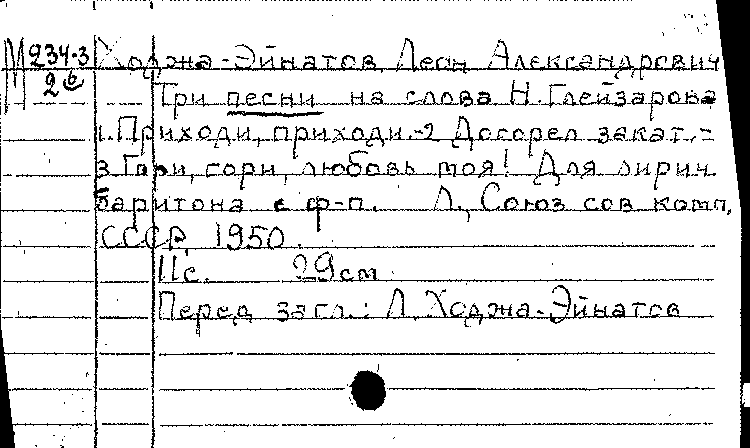 М 234-3 Ходжа-Эйнатов, Леон Александрович
26 Три песни на слова Н. Глейзарова
1. Приходи, приходи.-2 Догорел закат.-
3. Гори, гори, любовь моя! Для лирич.
баритона с ф-п. Л., Союз сов комп.
СССР, 1950.
11с. 29см
Перед загл.: Л. Ходжа-Эйнатов